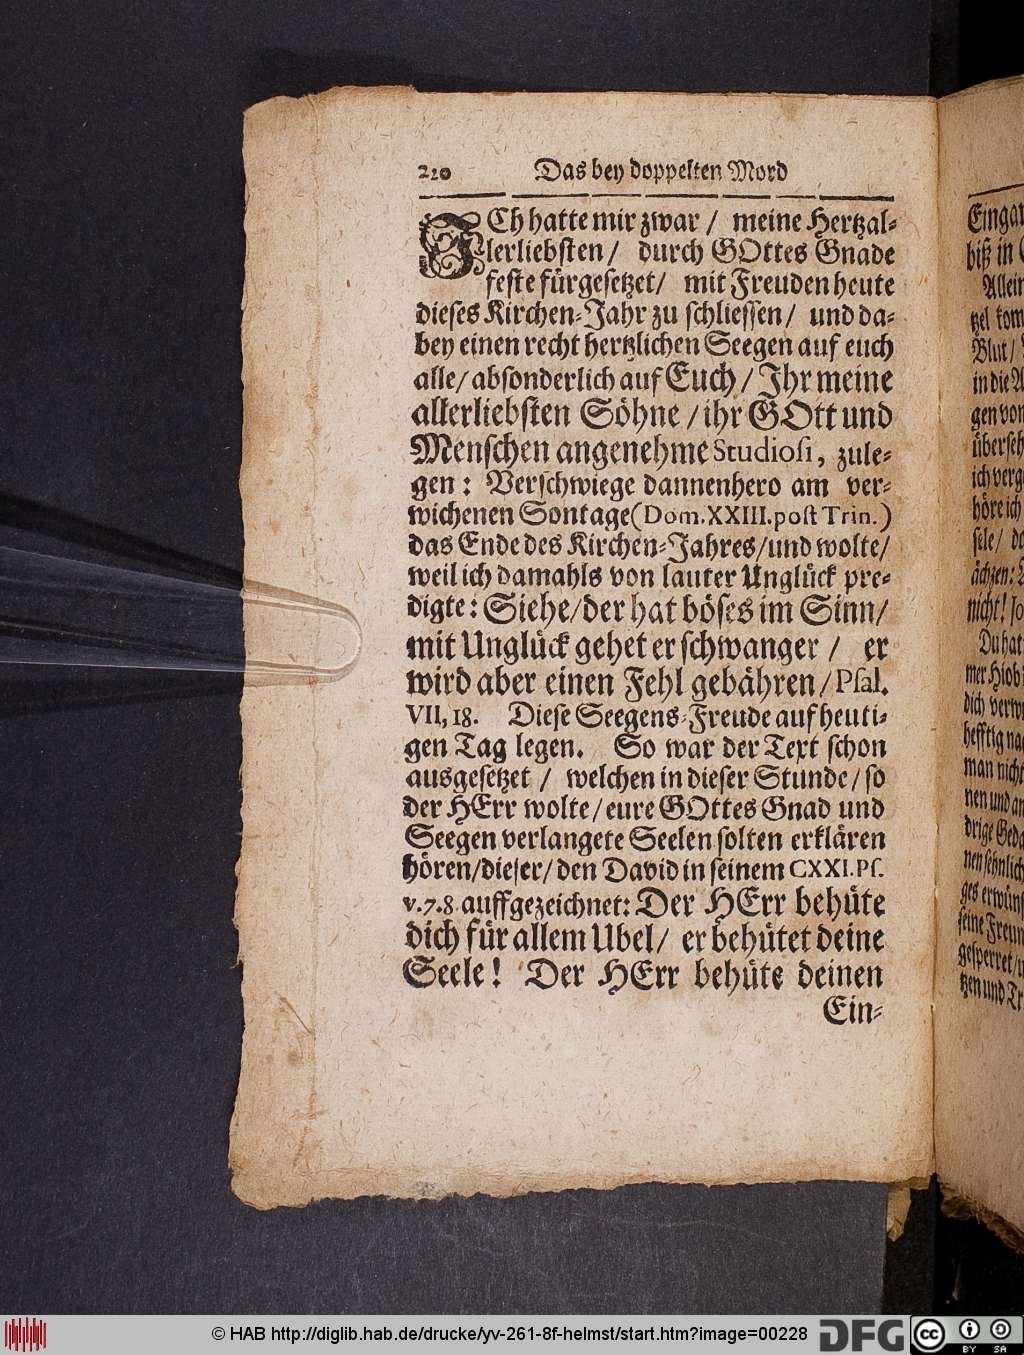 210 Das bey doppelten Mord
ICh hatte mir zwar / meine Hertzal-
lerliebsten / durch GOttes Gnade
feste fürgesetzet / mit Freuden heute
dieses Kirchen-Jahr zu schliessen / und da-
bey einen recht hertzlichen Seegen auf euch
alle / absonderlich auf Euch / Ihr meine
allerliebsten Söhne / ihr GOtt und
Menschen angenehme Studiosi, zule-
gen: Verschwiege dannenhero am ver-
wichenen Sontage (Dom. XXIII. post Trin.)
das Ende des Kirchen-Jahres / und wolte /
weil ich damahls von lauter Unglück pre-
digte: Siehe / der hat böses im Sinn /
mit Unglück gehet er schwanger / er
wird aber einen Fehl gebähren / Psal.
VII, 18. Diese Seegens-Freude auf heuti-
gen Tag legen. So war der Text schon
ausgesetzet / welchen in dieser Stunde / so
der HErr wolte / eure GOttes Gnad und
Seegen verlangete Seelen solten erklären
hören / dieser / den David in seinem CXXI. Ps.
v. 7. 8 auffgezeichnet: Der HErr behüte
dich für allem Ubel / er behütet deine
Seele! Der HErr behüte deinen
Ein-
Eingan
biß in
Allein
tzel kom
Blut /
in die A
gen von
überseh
ich verg
höre ich
sele / d
ächzen:
nicht! so
Du hat
mer Hiob
dich verw
hefftig na
man nicht
nen und an
drige Geda
nen sehnlich
ges erwüns
seine Freun
gesperret / u
tzen und Tr
© HAB http://diglib.hab.de/drucke/yv-261-8f-helmst/start.htm?image=00228
DFG
cc
BY SA